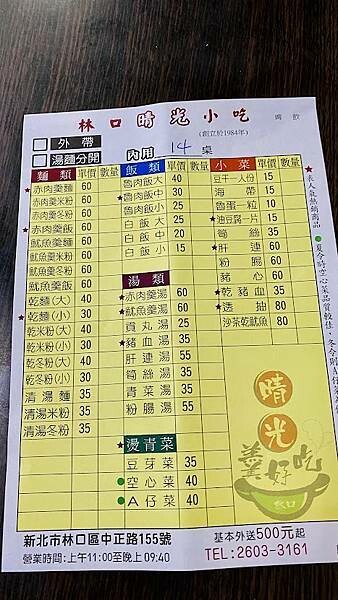 林口晴光小吃
(創立於1984年)
外帶
湯麵分開
內用 14 桌
麵類 單價 數量
★赤肉羹麵 60
赤肉羹米粉 60
赤肉羹冬粉 60
★赤肉羹飯 60
魷魚羹麵 60
魷魚羹米粉 60
魷魚羹冬粉 60
魷魚羹飯 60
乾麵(大) 40
★乾麵(小) 30
乾米粉(大) 40
乾米粉(小) 30
乾冬粉(大) 40
乾冬粉(小) 30
清湯麵 35
清湯米粉 35
清湯冬粉 35
飯類 單價 數量
魯肉飯大 40
★魯肉飯中 30
魯肉飯小 25
白飯大 25
白飯中 20
白飯小 15
湯類
★赤肉羹湯 60
★魷魚羹湯 60
貢丸湯 25
★豬血湯 30
肝連湯 55
筍絲湯 35
青菜湯 35
粉腸湯 55
★燙青菜
豆芽菜 35
●空心菜 40
●A仔菜 40
小菜 單價 數量
豆干一人份 15
海帶 15
魯蛋一粒 10
★油豆腐一片 15
筍絲 35
★肝連 60
粉腸 60
豬心 60
★乾豬血 35
★透抽 80
沙茶乾魷魚 80
★表人氣熱銷商品
晴光
羹好吃
林口
新北市林口區中正路155號
營業時間:上午11:00至晚上09:40
基本外送500元起
TEL:2603-3161